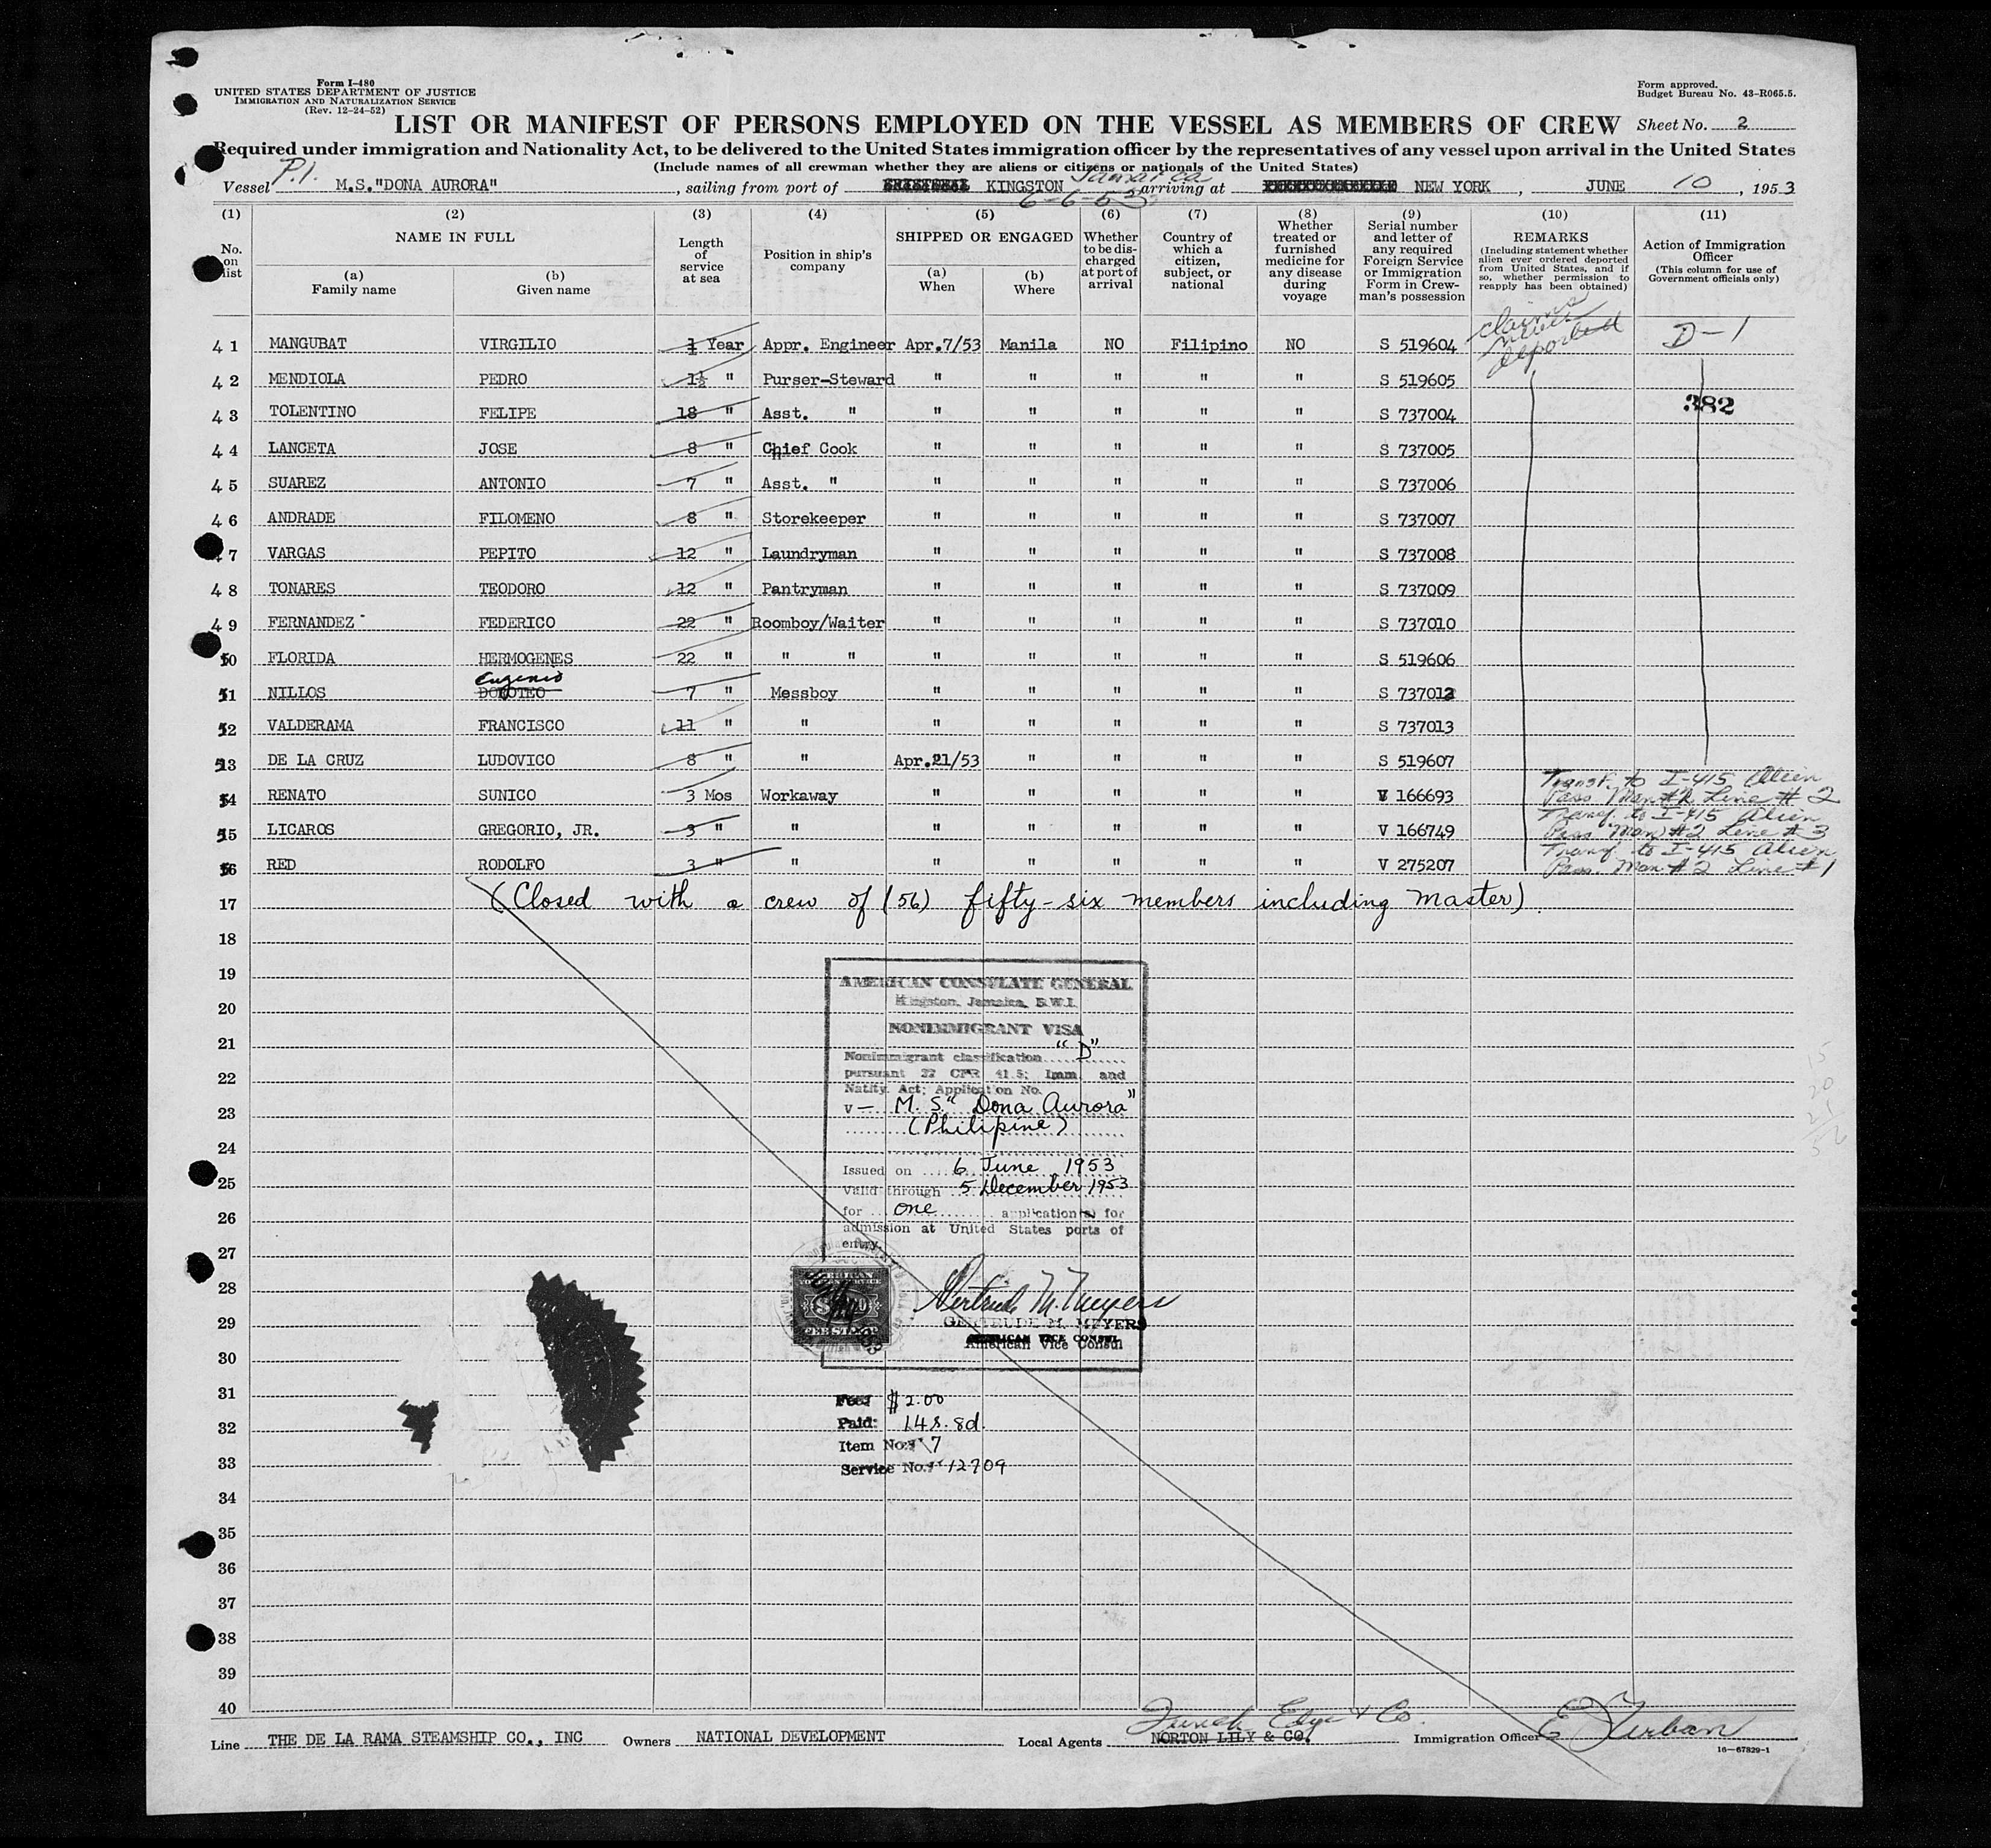 Form I-480
UNITED STATES DEPARTMENT OF JUSTICE
IMMIGRATION AND NATURALIZATION SERVICE
(Rev. 12-24-52)
Form approved.
Budget Bureau No. 43-R065.5.
LIST OR MANIFEST OF PERSONS EMPLOYED ON THE VESSEL AS MEMBERS OF CREW Sheet No. 2
Required under immigration and Nationality Act, to be delivered to the United States immigration officer by the representatives of any vessel upon arrival in the United States
(Include names of all crewman whether they are aliens or citizens or nationals of the United States)
P.I.
Vessel M.S."DONA AURORA", sailing from port of KINGSTON Jamaica arriving at NEW YORK, JUNE 10, 1953
6-6-53
(1) (2) (3) (4) (5) (6) (7) (8) (9) (10) (11)
No. on list
NAME IN FULL
(a) Family name
(b) Given name
Length of service at sea
Position in ship's company
SHIPPED OR ENGAGED
(a) When
(b) Where
Whether to be discharged at port of arrival
Country of which a citizen, subject, or national
Whether treated or furnished medicine for any disease during voyage
Serial number and letter of any required Foreign Service or Immigration Form in Crewman's possession
REMARKS
(Including statement whether alien ever ordered deported from United States, and if so, whether permission to reapply has been obtained)
Action of Immigration Officer
(This column for use of Government officials only)
claims never deported
41 MANGUBAT VIRGILIO Year Appr. Engineer Apr.7/53 Manila NO Filipino NO S 519604 D-1
42 MENDIOLA PEDRO 1½ " Purser-Steward " " " " " S 519605
43 TOLENTINO FELIPE 18 " Asst. " " " " " " S 737004 382
44 LANCETA JOSE 8 " Chief Cook " " " " " S 737005
45 SUAREZ ANTONIO 7 " Asst. " " " " " " S 737006
46 ANDRADE FILOMENO 8 " Storekeeper " " " " " S 737007
47 VARGAS PEPITO 12 " Laundryman " " " " " S 737008
48 TONARES TEODORO 12 " Pantryman " " " " " S 737009
49 FERNANDEZ FEDERICO 22 " Roomboy/Waiter " " " " " S 737010
50 FLORIDA HERMOGENES 22 " " " " " " " " S 519606
Eugenio
51 NILLOS DOROTEO 7 " Messboy " " " " " S 737012
52 VALDERAMA FRANCISCO 11 " " " " " " " S 737013
53 DE LA CRUZ LUDOVICO 8 " " Apr.21/53 " " " " S 519607
54 RENATO SUNICO 3 Mos Workaway " " " " " V 166693 Transf. to I-415 Alien Pass. Man #2 Line #2
55 LICAROS GREGORIO, JR. 3 " " " " " " " V 166749 Transf. to I-415 Alien Pass. Man #2 Line #3
56 RED RODOLFO 3 " " " " " " " V 275207 Transf. to I-415 Alien Pass. Man #2 Line #1
17 (Closed with a crew of (56) fifty-six members including Master).
18
19
20
21
22
23
24
25
26
27
28
29
30
31
32
33
34
35
36
37
38
39
40
AMERICAN CONSULATE GENERAL
Kingston, Jamaica, B.W.I.
NONIMMIGRANT VISA
Nonimmigrant classification "D"
pursuant 22 CFR 41.5; Imm. and
Natity. Act; Application No.
V — M.S." Dona Aurora"
(Philipine)
Issued on 6 June 1953
Valid through 5 December 1953
for one application(s) for
admission at United States ports of
entry.
Gertrude M. Meyers
GERTRUDE M. MEYERS
American Vice Consul
Fee: $2.00
Paid: 14s. 8d.
Item No. 7
Service No. 12709
Funch Edye & Co.
Line THE DE LA RAMA STEAMSHIP CO., INC Owners NATIONAL DEVELOPMENT Local Agents NORTON LILY & CO. Immigration Officer
16-67829-1